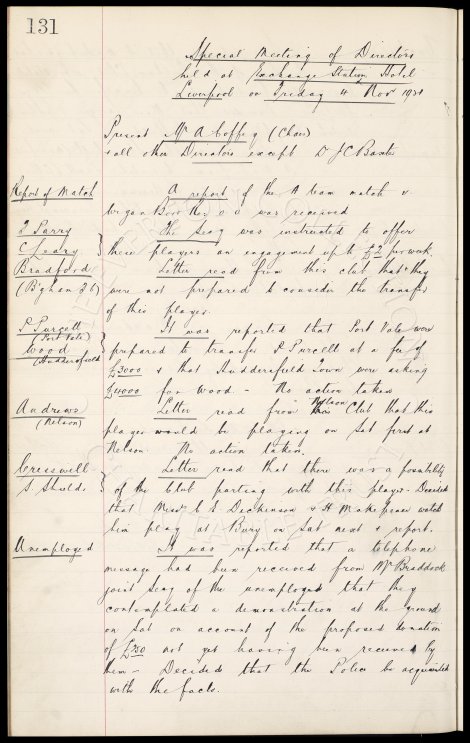 131
Special Meeting of Directors
held at Exchange Station Hotel
Liverpool on Friday 4 Nov 1921
Present Mr A Coffey (Chair)
& all other Directors except Dr J C Baxter
Report of Match
A report of the A team match v
Boro Res was received
T Parry
C Leary
The Secy was instructed to offer
these players an engagement up to £2 per week
Bradford
(B'ghan)
Letter read from this club that they
were not prepared to consider the transfer
of this player.
P Purcell
(Port Vale)
Wood
(Huddersfield
It was reported that Port Vale were
prepared to transfer P Purcell at a fee of
£3000 & that Huddersfield Town were asking
£4000 for Wood — No action taken
Andrews
(Nelson)
Letter read from Nelson Club that this
player would be playing on Sat first at
Nelson. No action taken.
Cresswell
S. Shields
Letter read that there was a possibility
of the Club parting with this player. Decided
that Messrs C S Dickinson & H Makepeace watch
him play at Bury on Sat next & report.
Unemployed
It was reported that a telephone
message had been received from Mr Braddock
joint Secy of the unemployed that they
contemplated a demonstration at the ground
on Sat on account of the proposed donation
of £50 not yet having been received by
them — Decided that the Police be acquainted
with the facts.